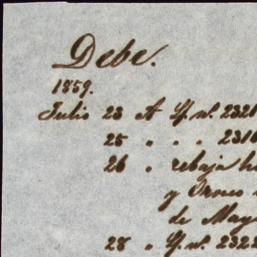 Debe.
1859.
Julio 23 A Lf. nº. 2321
25 " " " 2310
26 " rebaja h
y Ornes
de May
28 " Lf. nº. 2322